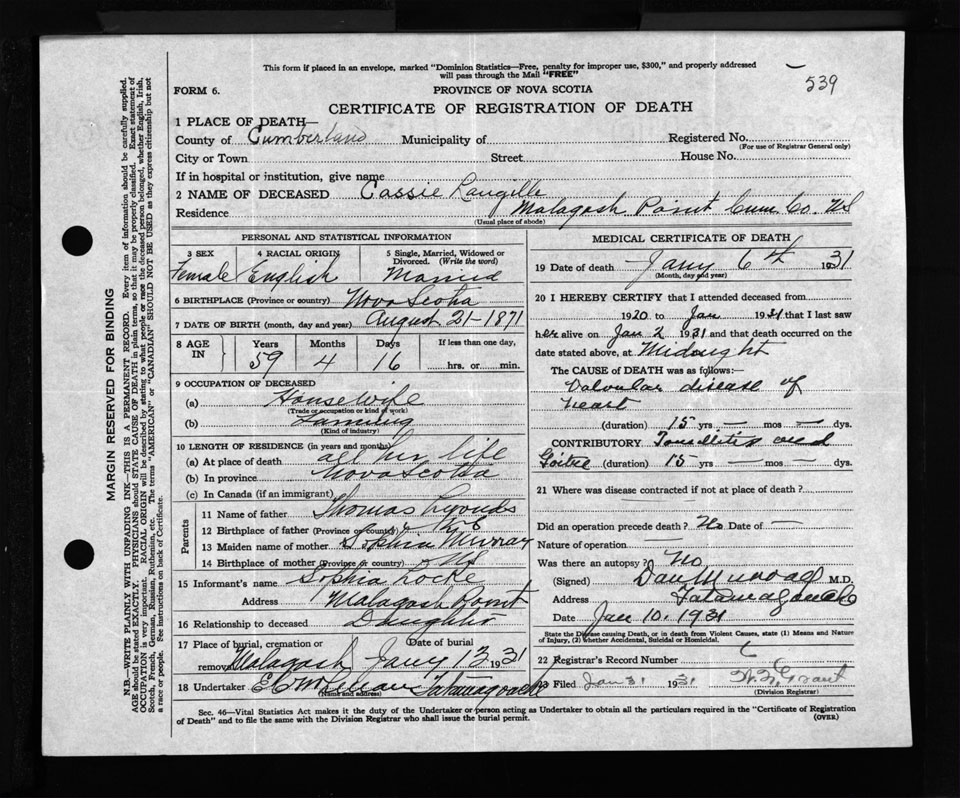 This form if placed in an envelope, marked "Dominion Statistics—Free, penalty for improper use, $300," and properly addressed
will pass through the Mail "FREE"
539
FORM 6.
PROVINCE OF NOVA SCOTIA
CERTIFICATE OF REGISTRATION OF DEATH
1 PLACE OF DEATH—
County of Cumberland Municipality of Registered No.
(For use of Registrar General only)
City or Town Street House No.
If in hospital or institution, give name
2 NAME OF DECEASED Cassie Langille
Residence Malagash Point Cum Co. NS
(Usual place of abode)
PERSONAL AND STATISTICAL INFORMATION
3 SEX 4 RACIAL ORIGIN 5 Single, Married, Widowed or
Divorced. (Write the word)
Female English Married
6 BIRTHPLACE (Province or country) Nova Scotia
7 DATE OF BIRTH (month, day and year) August 21-1871
8 AGE IN Years Months Days If less than one day,
59 4 16 hrs. or min.
9 OCCUPATION OF DECEASED
(a) Housewife
(Trade or occupation or kind of work)
(b) Farming
(Kind of industry)
10 LENGTH OF RESIDENCE (in years and months)
(a) At place of death all her life
(b) In province Nova Scotia
(c) In Canada (if an immigrant)
Parents
11 Name of father Thomas
12 Birthplace of father (Province or country) NS
13 Maiden name of mother Sophia Murray
14 Birthplace of mother (Province or country) NS
15 Informant's name Sophia Locke
Address Malagash Point
16 Relationship to deceased Daughter
17 Place of burial, cremation or Date of burial
removal Malagash Jany 13 1931
18 Undertaker Tatamagouche
(Name and address)
MEDICAL CERTIFICATE OF DEATH
19 Date of death Jany 6th 1931
(Month, day and year)
20 I HEREBY CERTIFY that I attended deceased from
1920 to Jan 1931 that I last saw
her alive on Jan 2 1931 and that death occurred on the
date stated above, at Midnight
The CAUSE of DEATH was as follows:—
Valvular disease of
heart
(duration) 15 yrs — mos — dys.
CONTRIBUTORY Tonsillitis and
Goitre (duration) 15 yrs — mos — dys.
21 Where was disease contracted if not at place of death?
Did an operation precede death? No Date of —
Nature of operation —
Was there an autopsy? No
(Signed) Dan Murray M.D.
Address Tatamagouche
Date Jan 10. 1931
State the Disease causing Death, or in death from Violent Causes, state (1) Means and Nature
of Injury, (2) whether Accidental, Suicidal or Homicidal.
22 Registrar's Record Number
23 Filed Jan 31 1931 Grant
(Division Registrar)
Sec. 46—Vital Statistics Act makes it the duty of the Undertaker or person acting as Undertaker to obtain all the particulars required in the "Certificate of Registration
of Death" and to file the same with the Division Registrar who shall issue the burial permit.
(OVER)
MARGIN RESERVED FOR BINDING
N.B.—WRITE PLAINLY WITH UNFADING INK—THIS IS A PERMANENT RECORD. Every item of information should be carefully supplied.
AGE should be stated EXACTLY. PHYSICIANS should STATE CAUSE OF DEATH in plain terms, so that it may be properly classified. Exact statement of
OCCUPATION is very important. RACIAL ORIGIN will be described by stating to what people or race the deceased person belonged, whether English, Irish,
Scotch, French, German, Russian, Ruthenian, etc. The terms "AMERICAN" or "CANADIAN" SHOULD NOT BE USED as they express citizenship but not
a race or people. See instructions on back of Certificate.